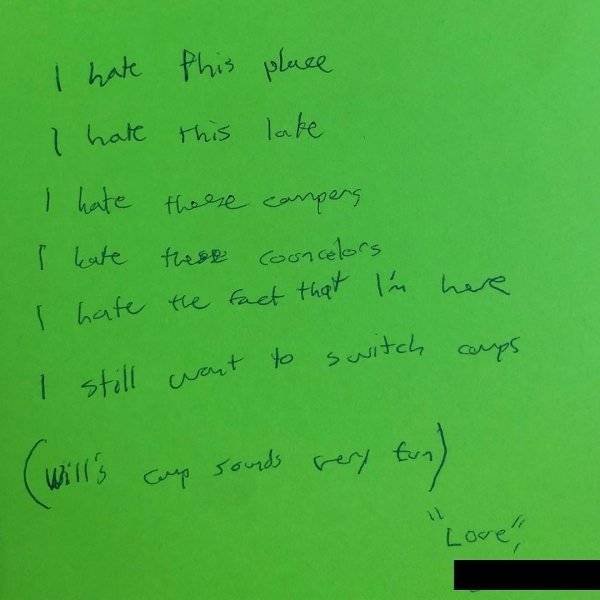 I hate this place
I hate this lake
I hate these campers
I hate these cooncelors
I hate the fact that I'm here
I still want to switch camps
(Will's camp sounds very fun)
"Love",